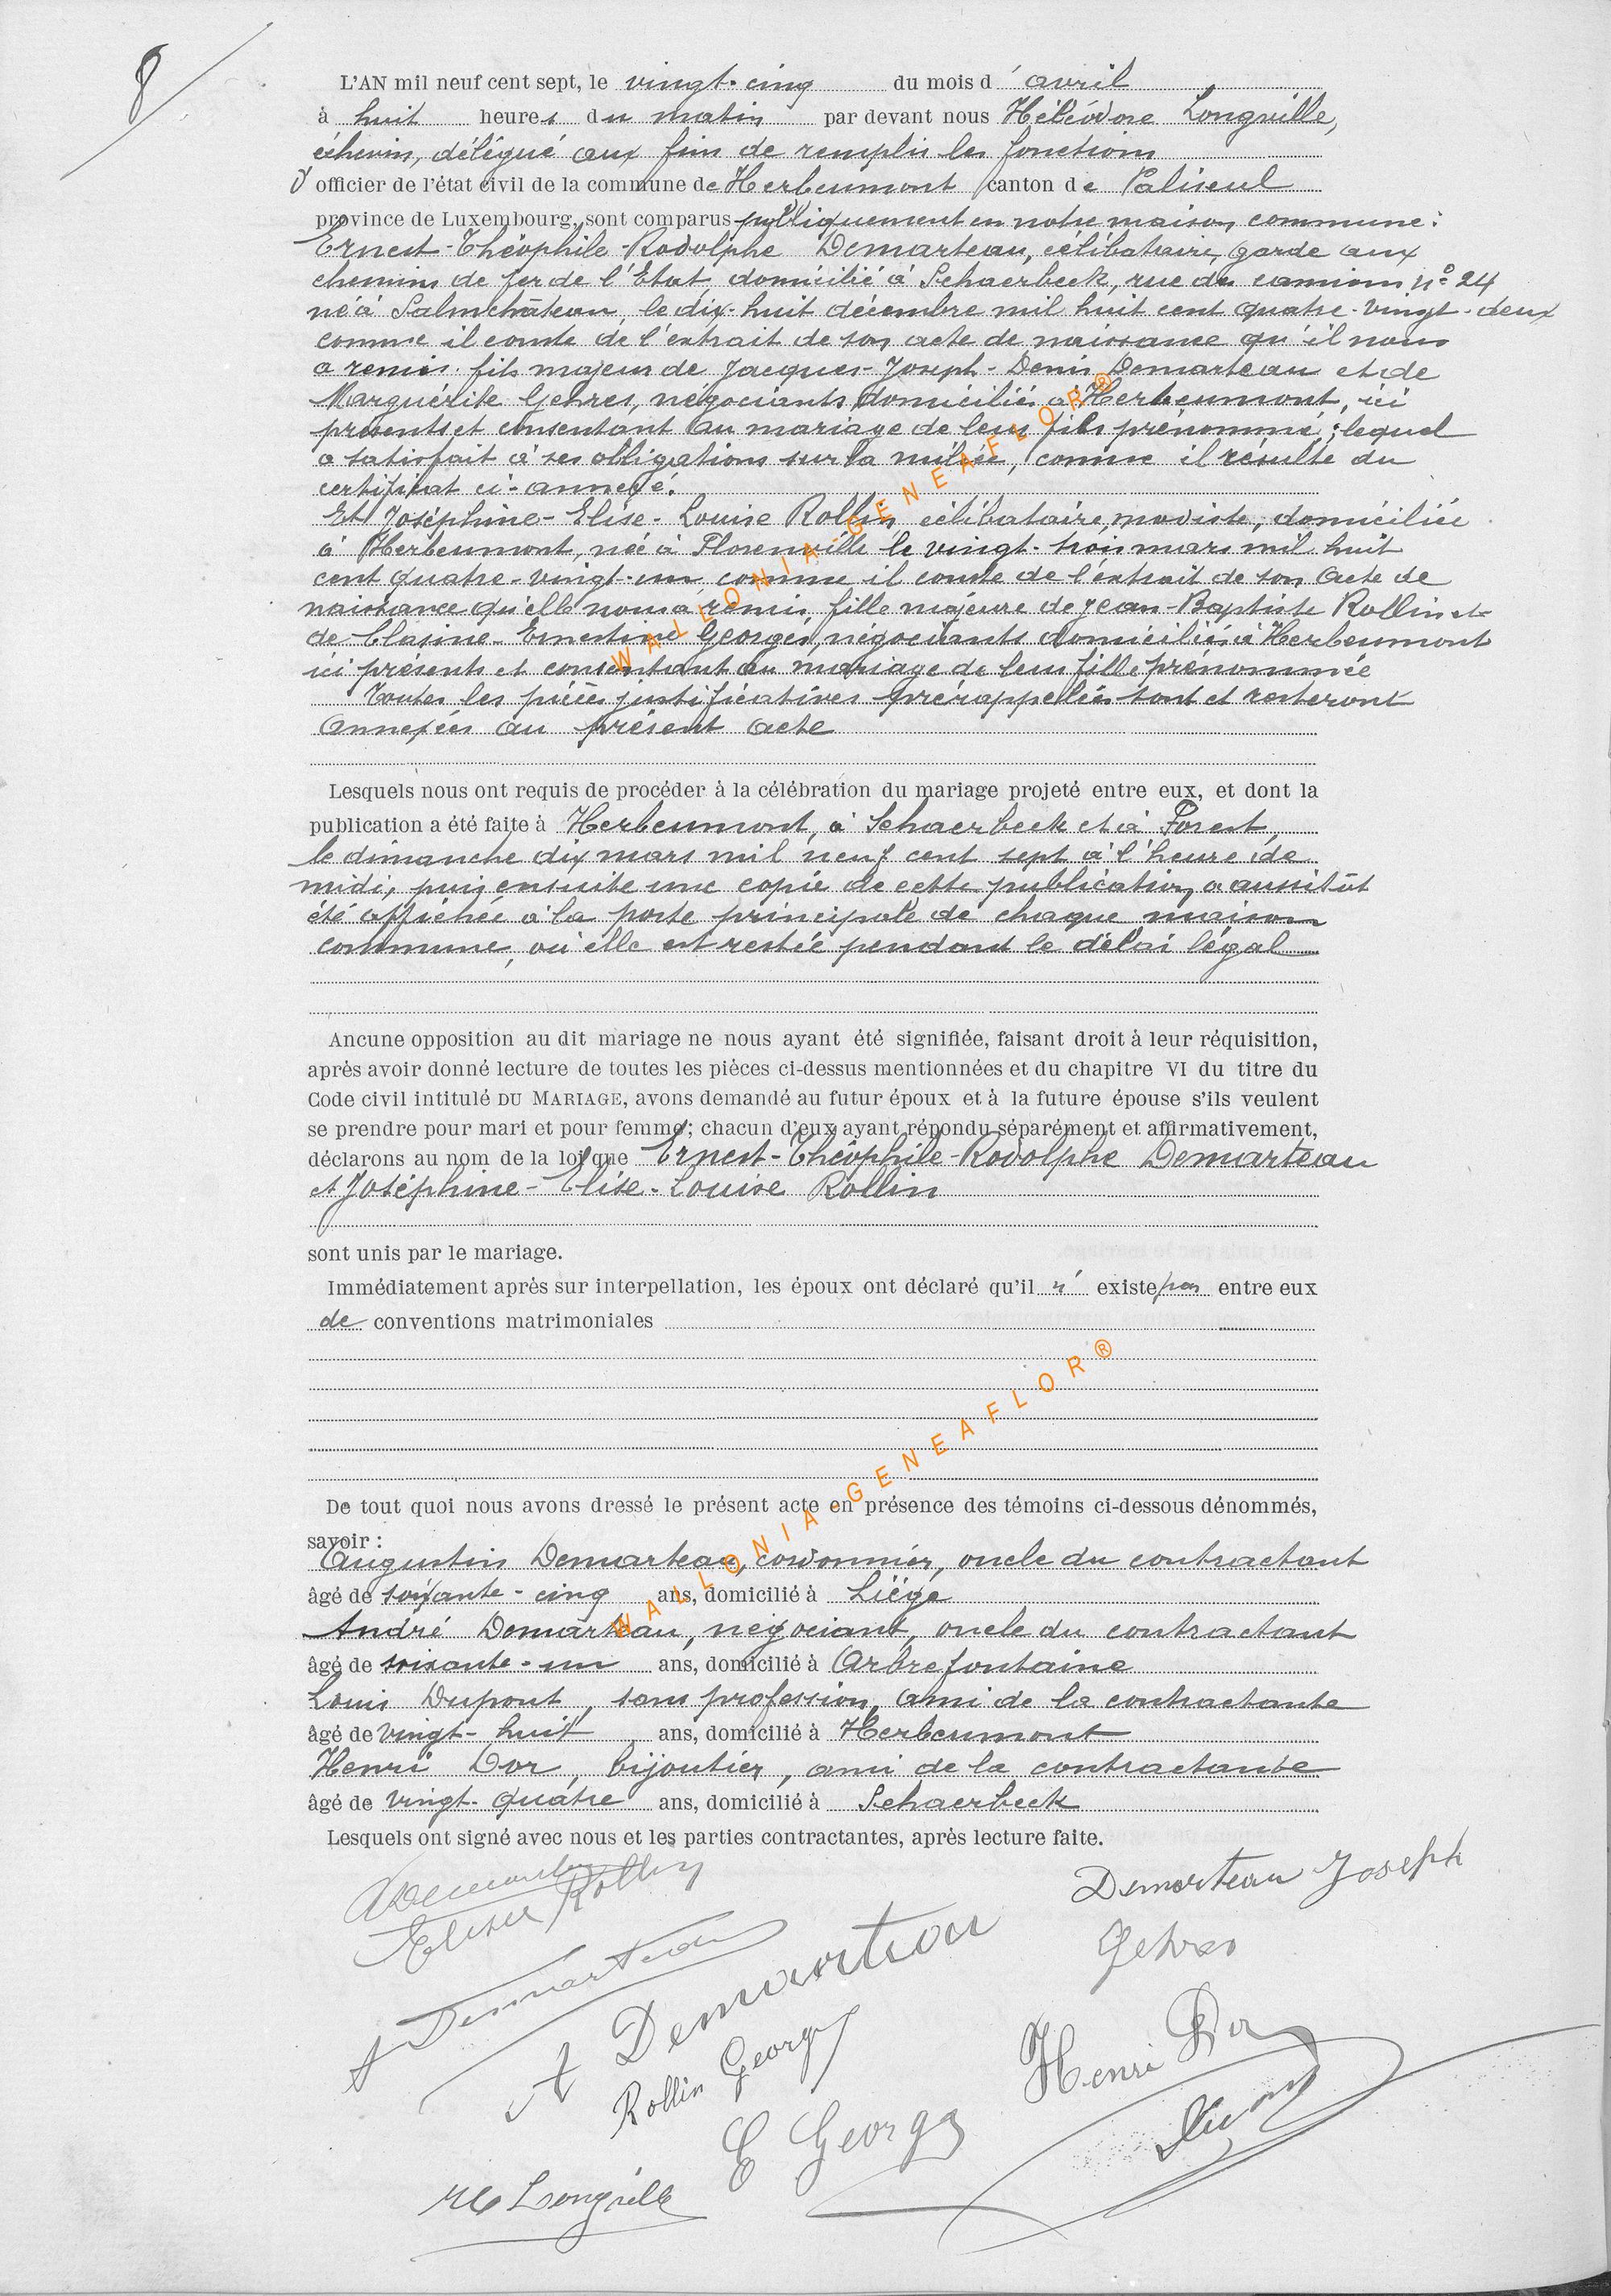 8
L'AN mil neuf cent sept, le vingt-cinq du mois d'avril
à huit heures du matin par devant nous Héliodore Longville,
échevin, délégué aux fins de remplir les fonctions
d'officier de l'état civil de la commune de Herbeumont canton de Paliseul
province de Luxembourg, sont comparus publiquement en notre maison commune :
Ernest-Théophile-Rodolphe Demarteau, célibataire, garde aux
chemins de fer de l'Etat, domicilié à Schaerbeek, rue du camion n° 24
né à Salmchâteau, le dix-huit décembre mil huit cent quatre-vingt-deux
comme il conste de l'extrait de son acte de naissance qu'il nous
a remis, fils majeur de Jacques-Joseph-Denis Demarteau et de
Marguérite Gehres, négociants domiciliés à Herbeumont, ici
présents et consentant au mariage de leur fils prénommé ; lequel
a satisfait à ses obligations sur la milice, comme il résulte du
certificat ci-annexé.
Et Joséphine-Elise-Louise Rollin célibataire, modiste, domiciliée
à Herbeumont, née à Florenville le vingt-trois mars mil huit
cent quatre-vingt-un comme il conste de l'extrait de son acte de
naissance qu'elle nous a remis, fille majeure de Jean-Baptiste Rollin et
de Clasine-Ernestine Georges, négociants domiciliés à Herbeumont
ici présents et consentant au mariage de leur fille prénommée
Toutes les pièces justificatives prérappelées sont et resteront
annexées au présent acte
Lesquels nous ont requis de procéder à la célébration du mariage projeté entre eux, et dont la
publication a été faite à Herbeumont, à Schaerbeek et à Forest,
le dimanche dix mars mil neuf cent sept à l'heure de
midi, puis ensuite une copie de cette publication a aussitôt
été affichée à la porte principale de chaque maison
commune, où elle est restée pendant le délai légal
Ancune opposition au dit mariage ne nous ayant été signifiée, faisant droit à leur réquisition,
après avoir donné lecture de toutes les pièces ci-dessus mentionnées et du chapitre VI du titre du
Code civil intitulé DU MARIAGE, avons demandé au futur époux et à la future épouse s'ils veulent
se prendre pour mari et pour femme ; chacun d'eux ayant répondu séparément et affirmativement,
déclarons au nom de la loi que Ernest-Théophile-Rodolphe Demarteau
et Joséphine-Elise-Louise Rollin
sont unis par le mariage.
Immédiatement après sur interpellation, les époux ont déclaré qu'il n'existe pas entre eux
de conventions matrimoniales
De tout quoi nous avons dressé le présent acte en présence des témoins ci-dessous dénommés,
savoir :
Augustin Demarteau, cordonnier, oncle du contractant
âgé de soixante-cinq ans, domicilié à Liège
André Demarteau, négociant, oncle du contractant
âgé de soixante-un ans, domicilié à Arbrefontaine
Louis Dupont, sans profession, ami de la contractante
âgé de vingt-huit ans, domicilié à Herbeumont
Henri Dor, bijoutier, ami de la contractante
âgé de vingt-quatre ans, domicilié à Schaerbeek
Lesquels ont signé avec nous et les parties contractantes, après lecture faite.
Demarteau
Rollin
Demarteau Joseph
Gehres
A Demarteau
A Demarteau
Rollin Georges
Henri Dor
E Georges
H Longville
WALLONIA-GENEAFLOR®
WALLONIA-GENEAFLOR®